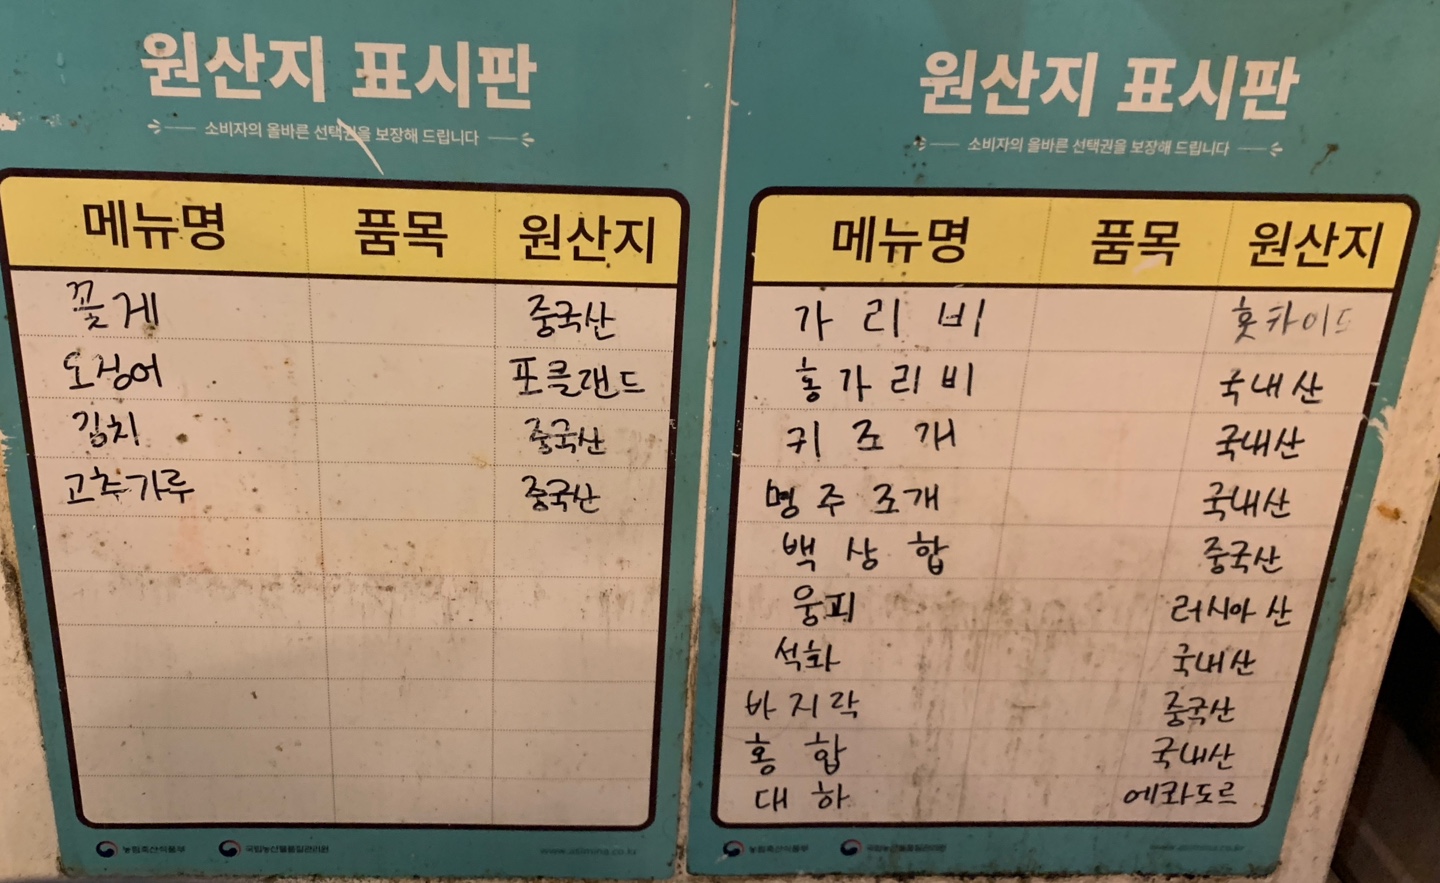 원산지 표시판
소비자의 올바른 선택권을 보장해 드립니다
메뉴명 품목 원산지
꽃게 중국산
오징어 포클랜드
김치 중국산
고추가루 중국산
농림축산식품부 국립농산물품질관리원
원산지 표시판
소비자의 올바른 선택권을 보장해 드립니다
메뉴명 품목 원산지
가리비 홋카이도
홍가리비 국내산
키조개 국내산
명주조개 국내산
백상합 중국산
웅피 러시아산
석화 국내산
바지락 중국산
홍합 국내산
대하 에콰도르
농림축산식품부 국립농산물품질관리원